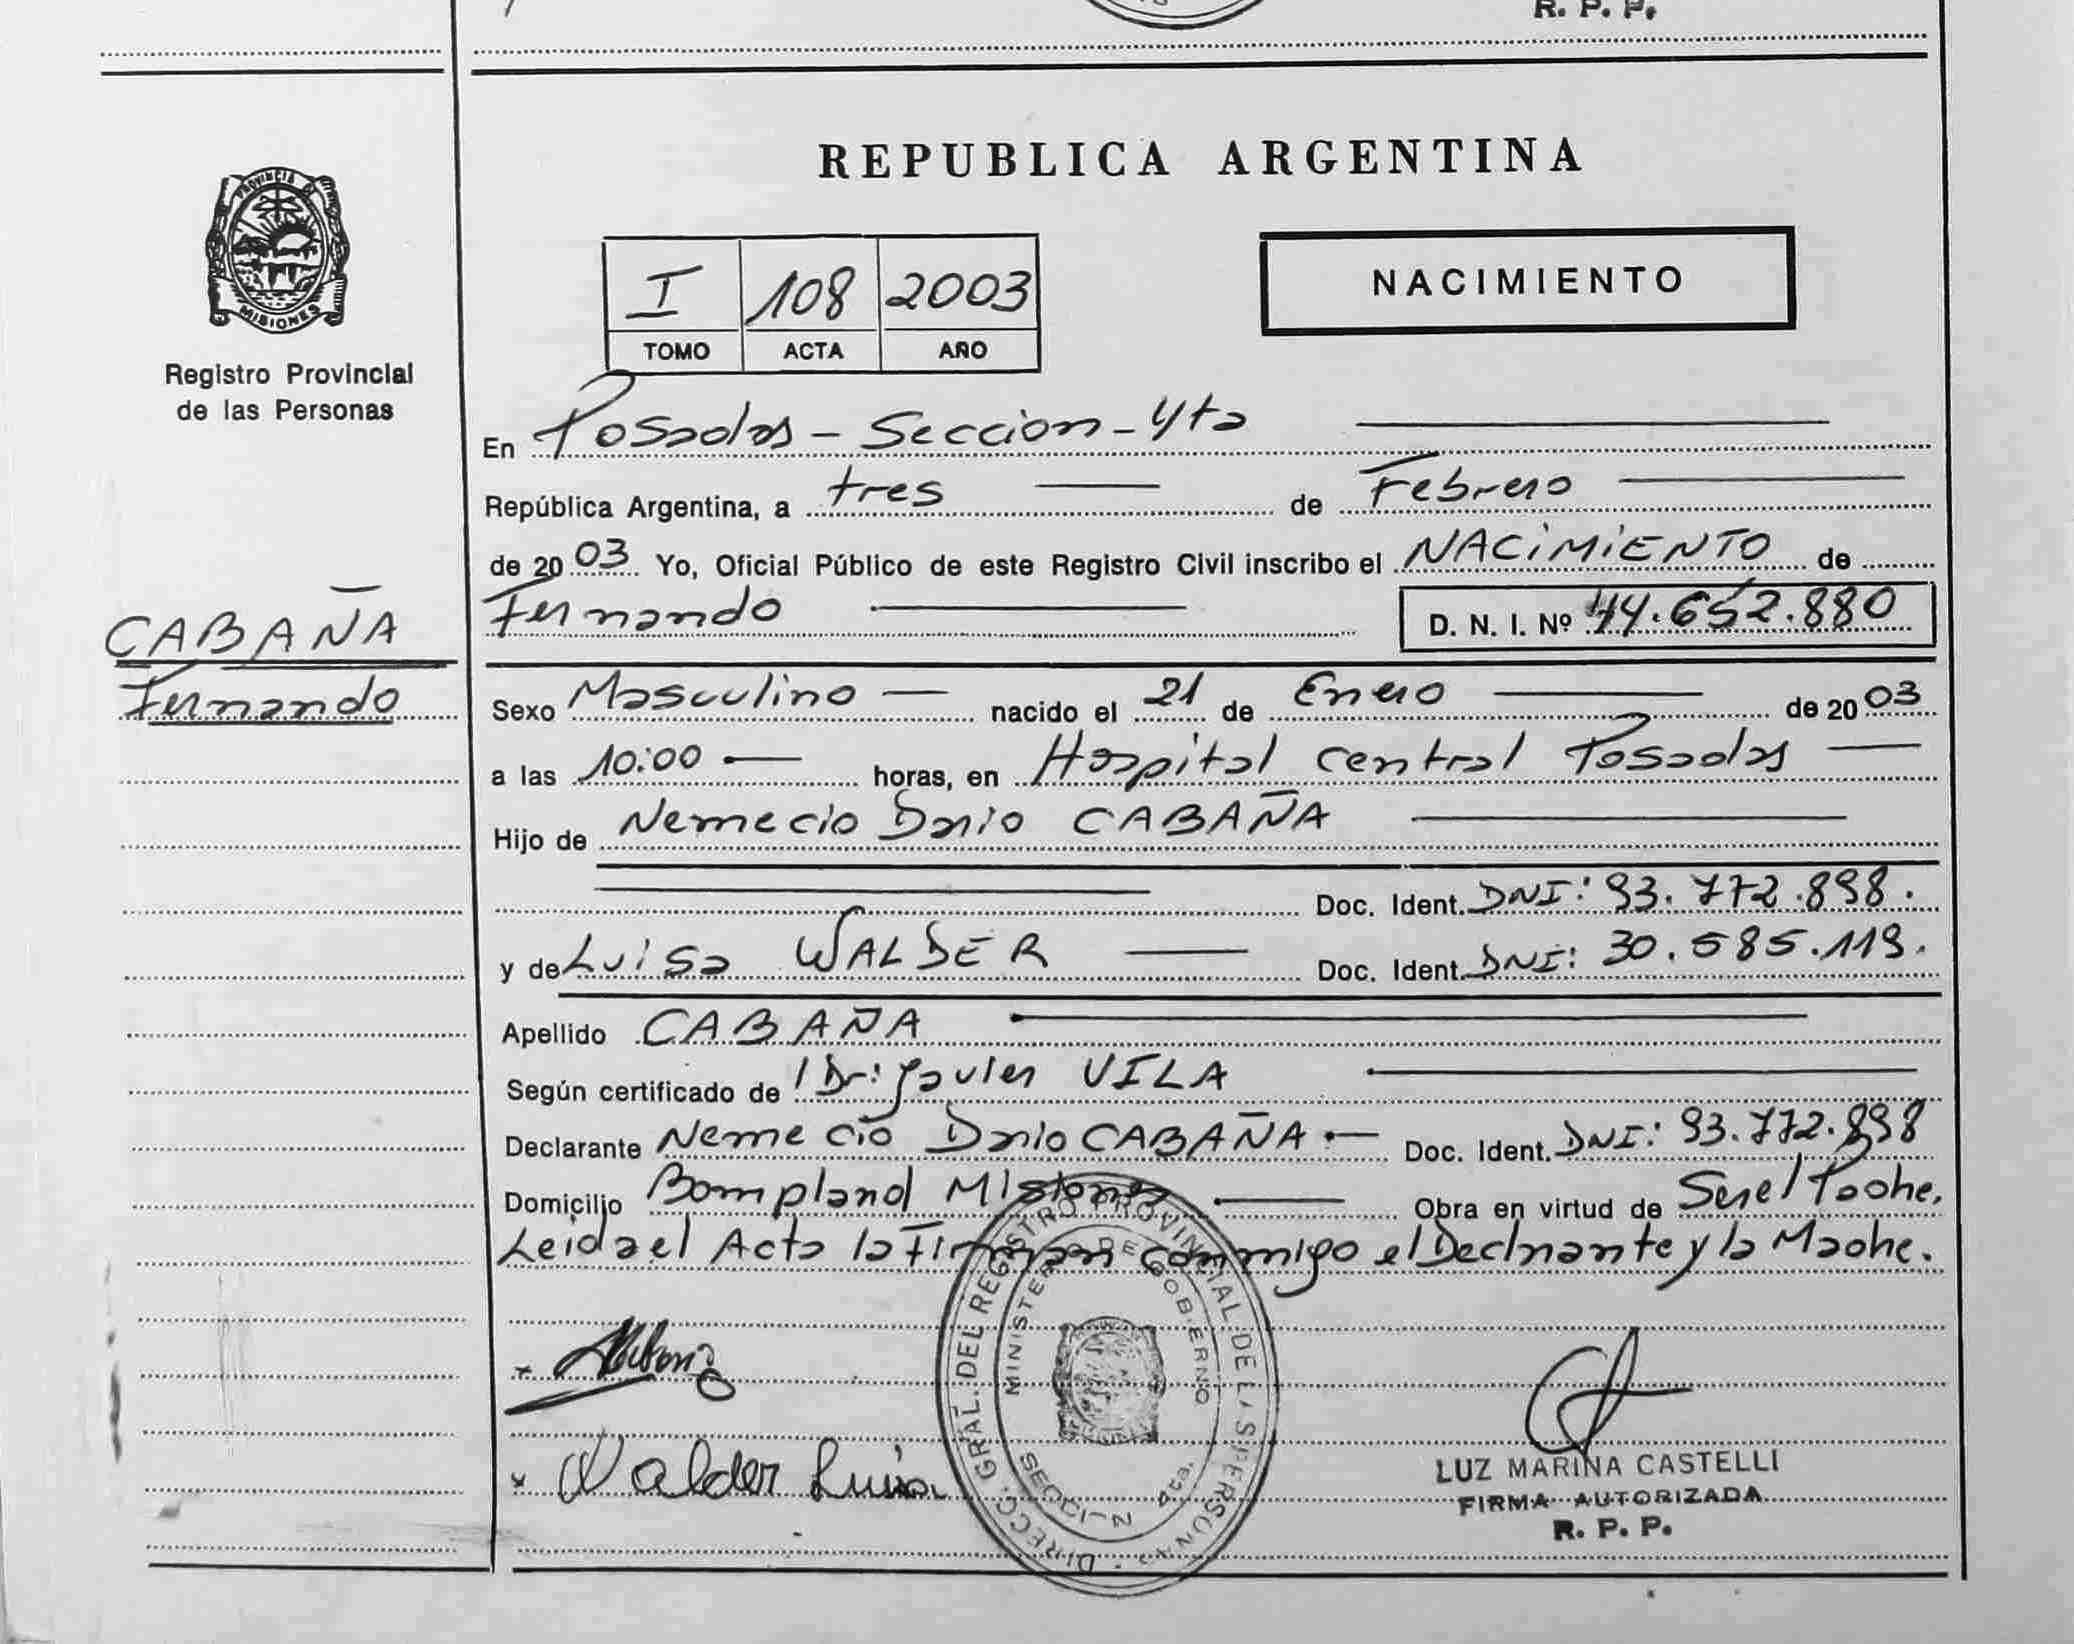 R. P. P.
REPUBLICA ARGENTINA
PROVINCIA DE
MISIONES
Registro Provincial
de las Personas
I 108 2003
TOMO ACTA AÑO
NACIMIENTO
En Posadas - Seccion - 4ta
República Argentina, a tres de Febrero
de 2003 Yo, Oficial Público de este Registro Civil inscribo el NACIMIENTO de
Fernando D. N. I. Nº 44.652.880
CABAÑA
Fernando
Sexo Masculino nacido el 21 de Enero de 2003
a las 10:00 horas, en Hospital Central Posadas
Hijo de Nemecio Dario CABAÑA
Doc. Ident. DNI: 93.772.898.
y de Luisa WALDER Doc. Ident. DNI: 30.585.119.
Apellido CABAÑA
Según certificado de Dr: Javier VILA
Declarante Nemecio Dario CABAÑA Doc. Ident. DNI: 93.772.898
Domicilio Bompland Misiones Obra en virtud de Ser el Padre.
Leida el Acta la Firman conmigo el Declarante y la Madre.
Walder Luisa
DIRECC. GRAL. DEL REGISTRO PROVINCIAL DE LAS PERSONAS
MINISTERIO DE GOBIERNO
SECCION 4ta.
LUZ MARINA CASTELLI
FIRMA AUTORIZADA
R. P. P.